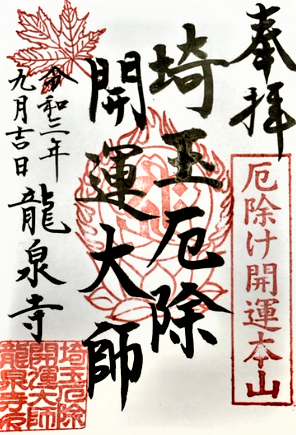 奉拝
厄除け開運本山
埼玉厄除
開運大師
令和三年
九月吉日
龍泉寺
埼玉厄除
開運大師
龍泉寺印